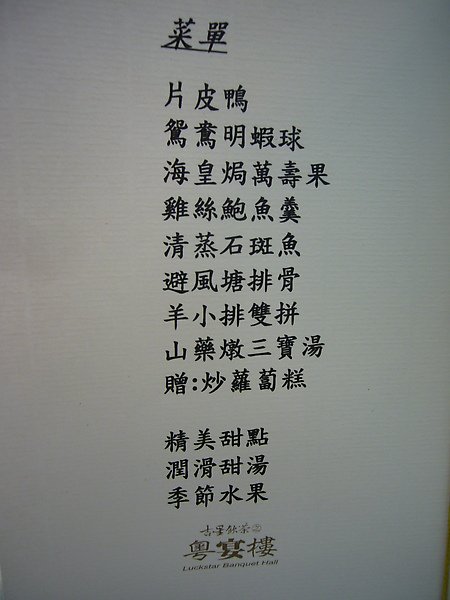 菜單
片皮鴨
鴛鴦明蝦球
海皇焗萬壽果
雞絲鮑魚羹
清蒸石斑魚
避風塘排骨
羊小排雙拼
山藥燉三寶湯
贈:炒蘿蔔糕
精美甜點
潤滑甜湯
季節水果
吉星飲茶之
粵宴樓
Luckstar Banquet Hall